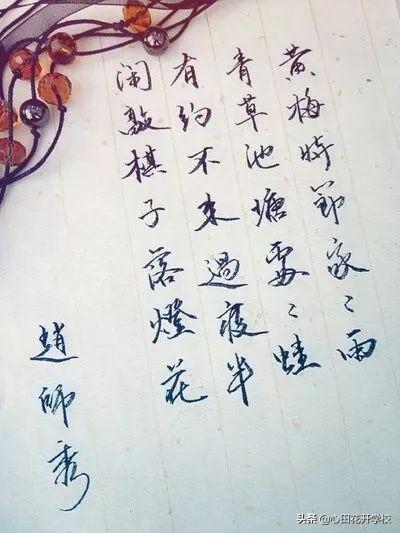 黄梅時節家〻雨
青草池塘處〻蛙
有约不来過夜半
闲敲棋子落燈花
趙師秀
头条@心田花开学校